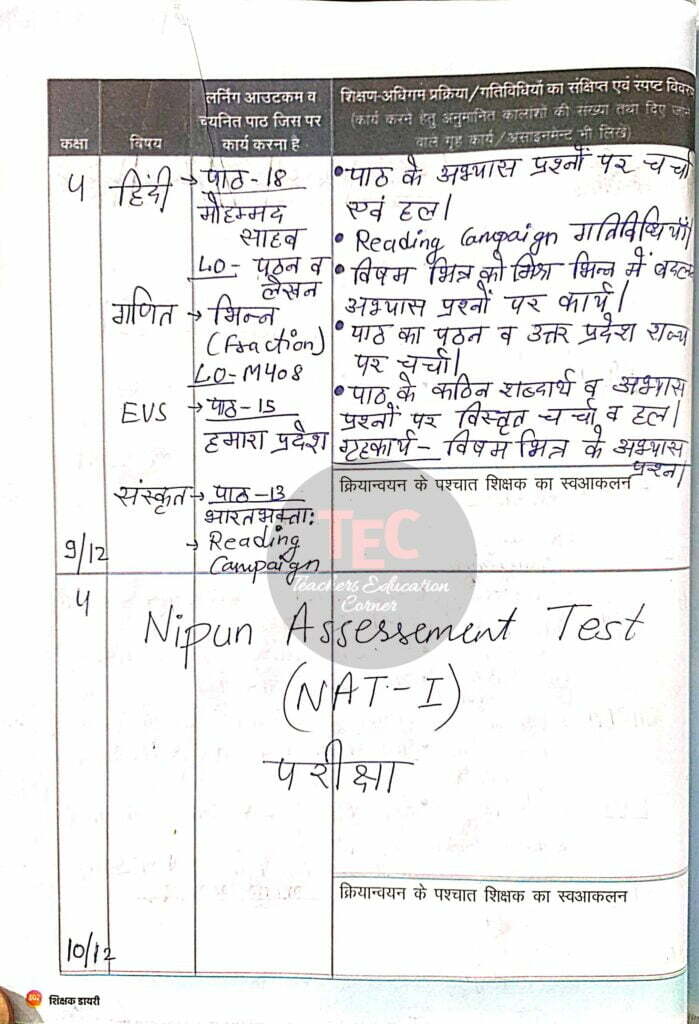 कक्षा
विषय
लर्निंग आउटकम व
च्यनित पाठ जिस पर
कार्य करना है
शिक्षण-अधिगम प्रक्रिया/गतिविधियों का संक्षिप्त एवं स्पष्ट विवरण
(कार्य करने हेतु अनुमानित कालांशों की संख्या तथा दिए जाने
वाले गृह कार्य/असाइनमेन्ट भी लिखें)
4
हिंदी → पाठ-18
मौहम्मद
साहब
LO- पठन व
लेखन
गणित → भिन्न
(Fraction)
LO-M408
EVS → पाठ-15
हमारा प्रदेश
संस्कृत → पाठ-13
भारतभक्ता:
→ Reading
Campaign
9/12
• पाठ के अभ्यास प्रश्नों पर चर्चा
एवं हल।
• Reading Campaign गतिविधियाँ।
• विषम भिन्न को मिश्र भिन्न में बदल
अभ्यास प्रश्नों पर कार्य।
• पाठ का पठन व उत्तर प्रदेश राज्य
पर चर्चा।
• पाठ के कठिन शब्दार्थ व अभ्यास
प्रश्नों पर विस्तृत चर्चा व हल।
गृहकार्य - विषम भिन्न के अभ्यास
प्रश्न।
क्रियान्वयन के पश्चात शिक्षक का स्वआकलन
TEC
Teachers Education
Corner
4
Nipun Assessement Test
(NAT-I)
परीक्षा
क्रियान्वयन के पश्चात शिक्षक का स्वआकलन
10/12
शिक्षक डायरी